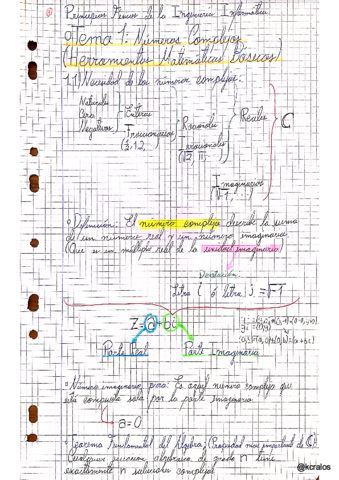 Principios Físicos de la Ingeniería Informática
Tema 1: Números Complejos
(Herramientas Matemáticas Básicas)
1.1) Necesidad de los números complejos:
Naturales
Cero
Negativos
Enteros
Fraccionarios
Racionales
Irracionales
(√2, π...)
Reales
Imaginarios
C
Definición: El número complejo describe la suma
de un número real y un número imaginario
(Que es un múltiplo real de la unidad imaginaria)
Notación:
Letra i ó letra j = √-1
Z = a + bi
Parte Real
Parte Imaginaria
Número imaginario puro: Es aquel número complejo que
está compuesto solo por la parte imaginaria.
a=0
Teorema Fundamental del Álgebra; (Propiedad más importante de C):
Cualquier ecuación algebraica de grado n tiene
exactamente n soluciones complejas
@kcralos